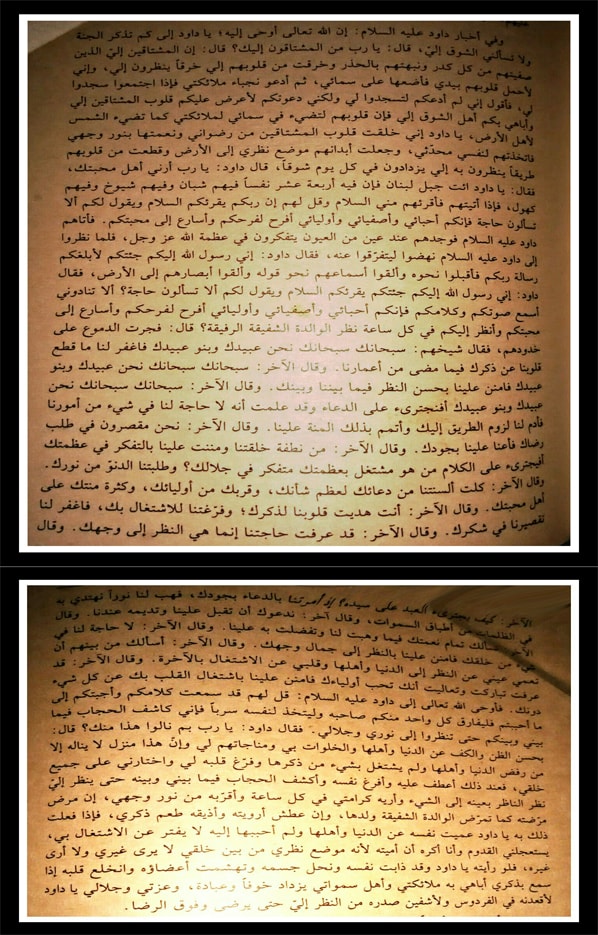 وفي أخبار داود عليه السلام: إن الله تعالى أوحى إليه؛ يا داود إلى كم تذكر الجنة
ولا تسألني الشوق إليّ، قال: يا رب من المشتاقون إليك؟ قال: إن المشتاقين إليّ الذين
صفيتهم من كل كدر ونبهتهم بالحذر وخرقت من قلوبهم إلي خرقاً ينظرون إلي، وإني
لأحمل قلوبهم بيدي فأضعها على سمائي، ثم أدعو نجباء ملائكتي فإذا اجتمعوا سجدوا
لي، فأقول إني لم أدعكم لتسجدوا لي ولكني دعوتكم لأعرض عليكم قلوب المشتاقين إلي
وأباهي بكم أهل الشوق إلي فإن قلوبهم لتضيء في سمائي لملائكتي كما تضيء الشمس
لأهل الأرض، يا داود إني خلقت قلوب المشتاقين من رضواني ونعمتها بنور وجهي
فاتخذتهم لنفسي محدّثي، وجعلت أبدانهم موضع نظري إلى الأرض وقطعت من قلوبهم
طريقاً ينظرون به إلي يزدادون في كل يوم شوقاً، قال داود: يا رب أرني أهل محبتك،
فقال: يا داود ائت جبل لبنان فإن فيه أربعة عشر نفساً فيهم شبان وفيهم شيوخ وفيهم
كهول، فإذا أتيتهم فأقرئهم مني السلام وقل لهم إن ربكم يقرئكم السلام ويقول لكم ألا
تسألون حاجة فإنكم أحبائي وأصفيائي وأوليائي أفرح لفرحكم وأسارع إلى محبتكم. فأتاهم
داود عليه السلام فوجدهم عند عين من العيون يتفكرون في عظمة الله عز وجل، فلما نظروا
إلى داود عليه السلام نهضوا ليتفرّقوا عنه، فقال داود: إني رسول الله إليكم جئتكم لأبلغكم
رسالة ربكم فأقبلوا نحوه وألقوا أسماعهم نحو قوله وألقوا أبصارهم إلى الأرض، فقال
داود: إني رسول الله إليكم جئتكم يقرئكم السلام ويقول لكم ألا تسألون حاجة؟ ألا تنادوني
أسمع صوتكم وكلامكم فإنكم أحبائي وأصفيائي وأوليائي أفرح لفرحكم وأسارع إلى
محبتكم وأنظر إليكم في كل ساعة نظر الوالدة الشفيقة الرفيقة؟ قال: فجرت الدموع على
خدودهم، فقال شيخهم: سبحانك سبحانك نحن عبيدك وبنو عبيدك فاغفر لنا ما قطع
قلوبنا عن ذكرك فيما مضى من أعمارنا. وقال الآخر: سبحانك سبحانك نحن عبيدك وبنو
عبيدك فامنن علينا بحسن النظر فيما بيننا وبينك. وقال الآخر: سبحانك سبحانك نحن
عبيدك وبنو عبيدك أفنجترىء على الدعاء وقد علمت أنه لا حاجة لنا في شيء من أمورنا
فأدم لنا لزوم الطريق إليك وأتمم بذلك المنة علينا. وقال الآخر: نحن مقصرون في طلب
رضاك فأعنا علينا بجودك. وقال الآخر: من نطفة خلقتنا ومننت علينا بالتفكر في عظمتك
أفيجترىء على الكلام من هو مشتغل بعظمتك متفكر في جلالك؟ وطلبتنا الدنوّ من نورك.
وقال الآخر: كلت ألسنتنا من دعائك لعظم شأنك، وقربك من أوليائك، وكثرة منتك على
أهل محبتك. وقال الآخر: أنت هديت قلوبنا لذكرك؛ وفرّغتنا للاشتغال بك، فاغفر لنا
تقصيرنا في شكرك. وقال الآخر: قد عرفت حاجتنا إنما هي النظر إلى وجهك. وقال
الآخر: كيف يجترىء العبد على سيده؟ إذ أمرتنا بالدعاء بجودك، فهب لنا نوراً نهتدي به
في الظلمات من أطباق السموات، وقال آخر: ندعوك أن تقبل علينا وتديمه عندنا. وقال
الآخر: نسألك تمام نعمتك فيما وهبت لنا وتفضلت به علينا. وقال الآخر: لا حاجة لنا في
شيء من خلقك فامنن علينا بالنظر إلى جمال وجهك. وقال الآخر: أسألك من بينهم أن
تعمي عيني عن النظر إلى الدنيا وأهلها وقلبي عن الاشتغال بالآخرة. وقال الآخر: قد
عرفت تباركت وتعاليت أنك تحب أولياءك فامنن علينا باشتغال القلب بك عن كل شيء
دونك. فأوحى الله تعالى إلى داود عليه السلام: قل لهم قد سمعت كلامكم وأجبتكم إلى
ما أحببتم فليفارق كل واحد منكم صاحبه وليتخذ لنفسه سرباً فإني كاشف الحجاب فيما
بيني وبينكم حتى تنظروا إلى نوري وجلالي. فقال داود: يا رب بم نالوا هذا منك؟ قال:
بحسن الظن والكف عن الدنيا وأهلها والخلوات بي ومناجاتهم لي وإنّ هذا منزل لا يناله إلا
من رفض الدنيا وأهلها ولم يشتغل بشيء من ذكرها وفرّغ قلبه لي واختارني على جميع
خلقي، فعند ذلك أعطف عليه وأفرغ نفسه وأكشف الحجاب فيما بيني وبينه حتى ينظر إليّ
نظر الناظر بعينه إلى الشيء وأريه كرامتي في كل ساعة وأقرّبه من نور وجهي، إن مرض
مرّضته كما تمرّض الوالدة الشفيقة ولدها، وإن عطش أرويته وأذيقه طعم ذكري، فإذا فعلت
ذلك به يا داود عميت نفسه عن الدنيا وأهلها ولم أحببها إليه لا يفتر عن الاشتغال بي،
يستعجلني القدوم وأنا أكره أن أميته لأنه موضع نظري من بين خلقي لا يرى غيري ولا أرى
غيره، فلو رأيته يا داود وقد ذابت نفسه ونحل جسمه وتهشمت أعضاؤه وانخلع قلبه إذا
سمع بذكري أباهي به ملائكتي وأهل سمواتي يزداد خوفاً وعبادة، وعزتي وجلالي يا داود
لأقعدنه في الفردوس ولأشفين صدره من النظر إليّ حتى يرضى وفوق الرضا.